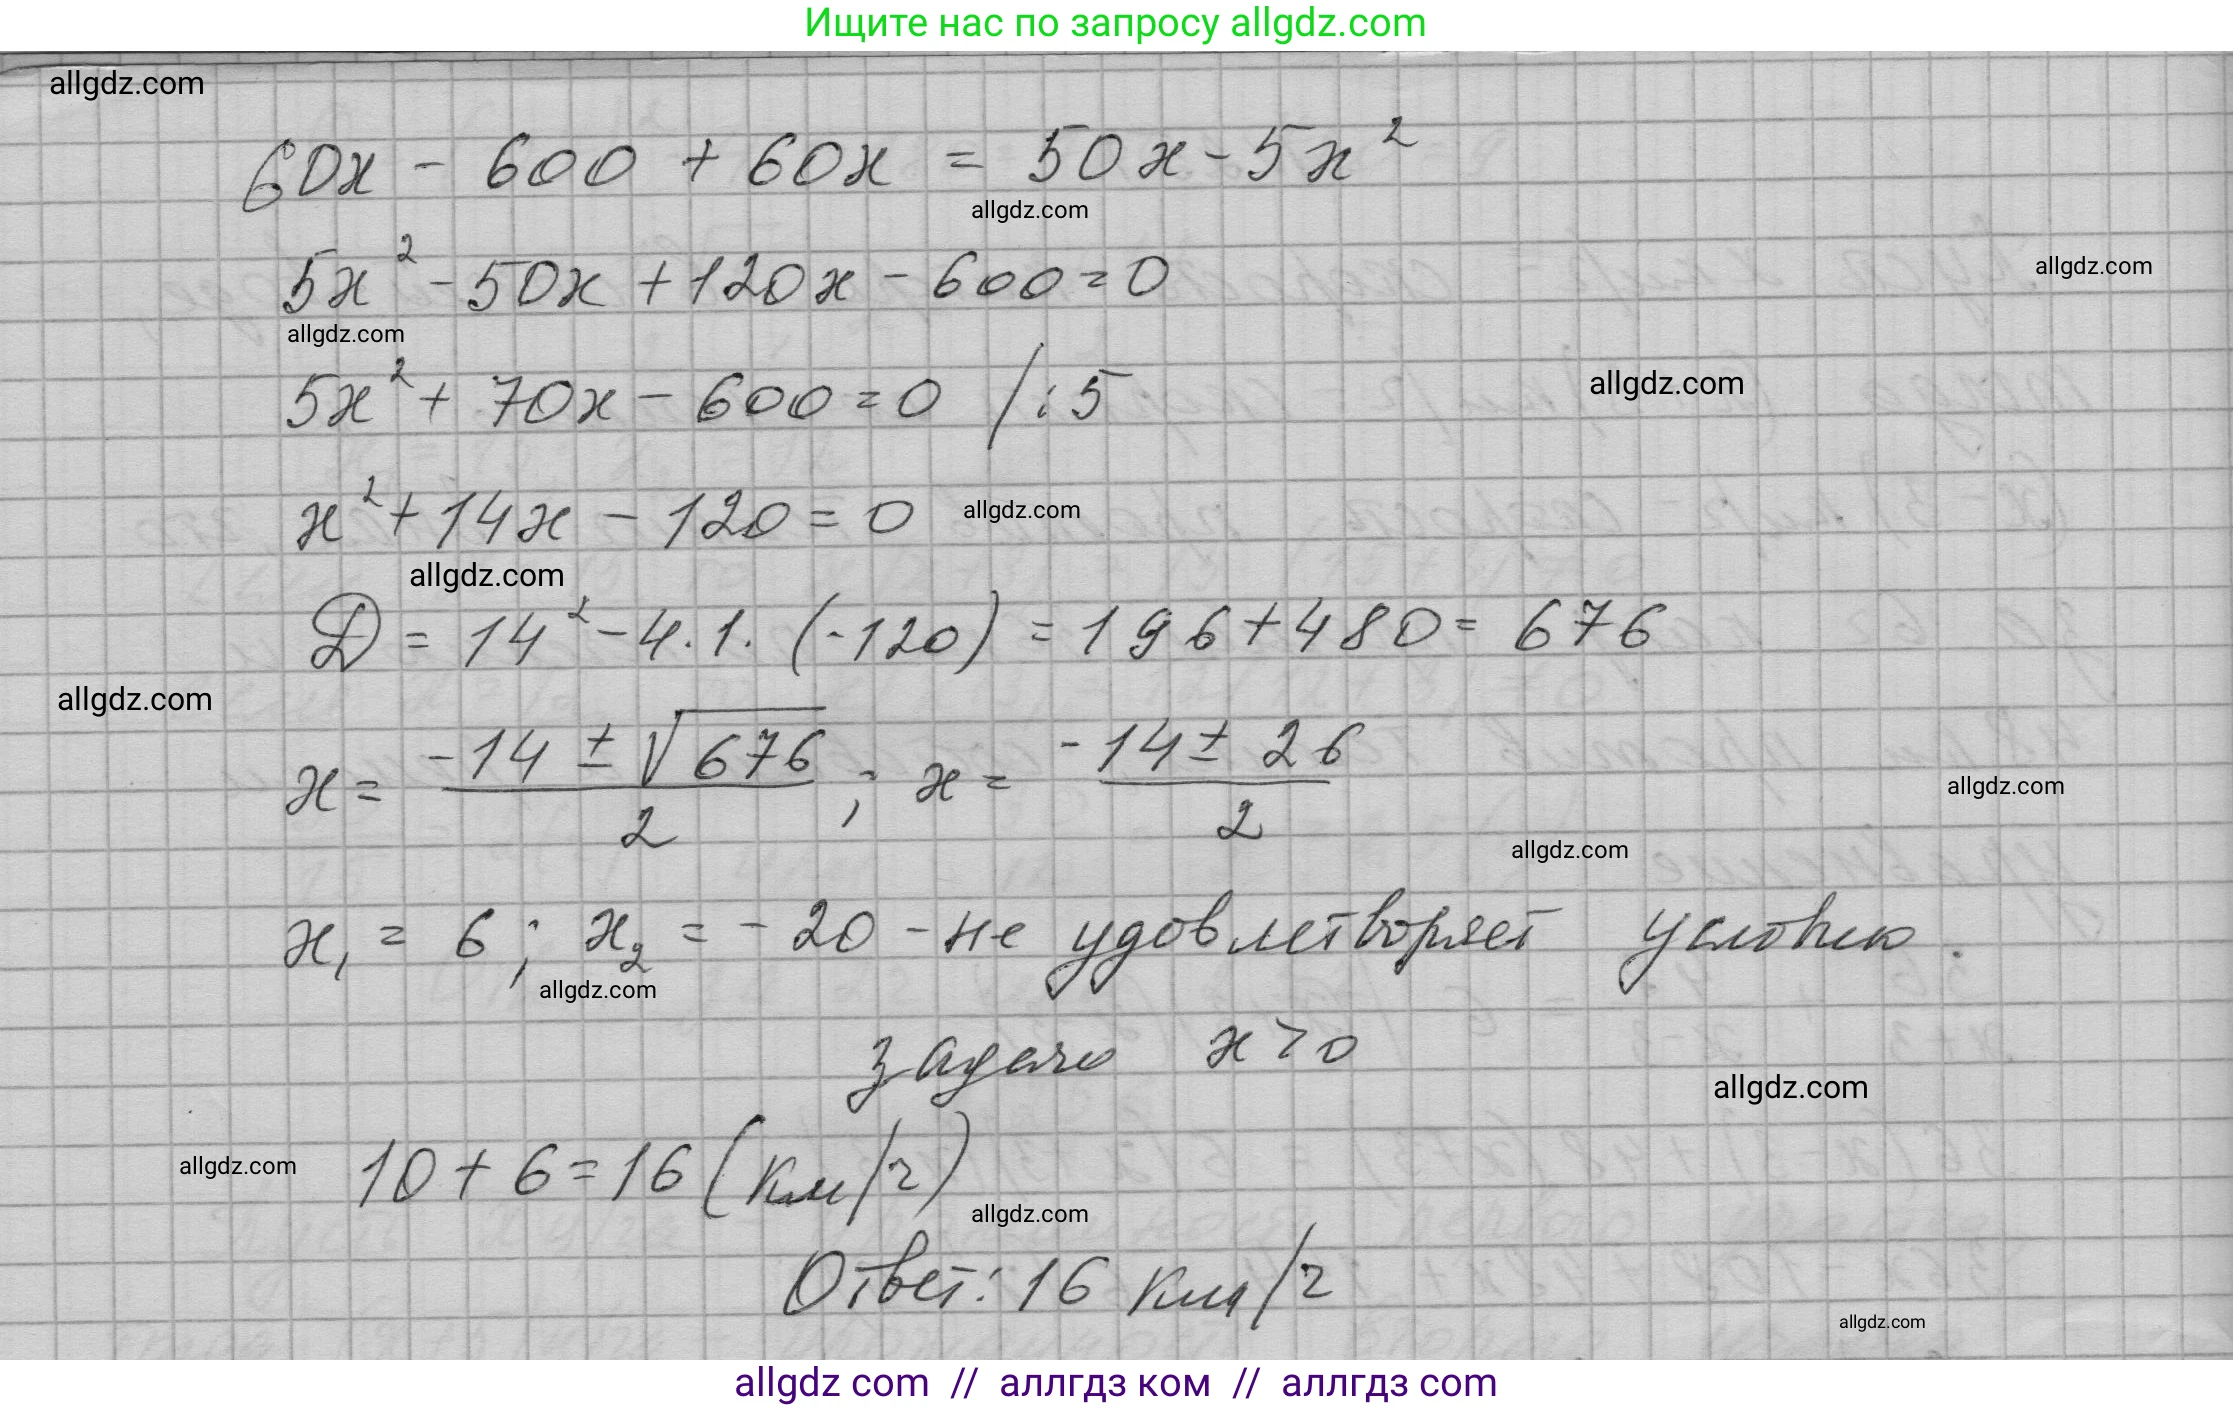 Ищите нас по запросу allgdz.com
allgdz.com
60x - 600 + 60x = 50x - 5x²
allgdz.com
5x² - 50x + 120x - 600 = 0
allgdz.com
allgdz.com
5x² + 70x - 600 = 0 / : 5
allgdz.com
x² + 14x - 120 = 0
allgdz.com
allgdz.com
D = 14² - 4 · 1 · (-120) = 196 + 480 = 676
allgdz.com
x = (-14 ± √676)/2 ; x = (-14 ± 26)/2
allgdz.com
allgdz.com
x₁ = 6 ; x₂ = - 20 - не удовлетворяет условию
allgdz.com
задачи x > 0
allgdz.com
allgdz.com
10 + 6 = 16 (км/ч)
allgdz.com
Ответ: 16 км/ч
allgdz.com
allgdz com // аллгдз ком // аллгдз com